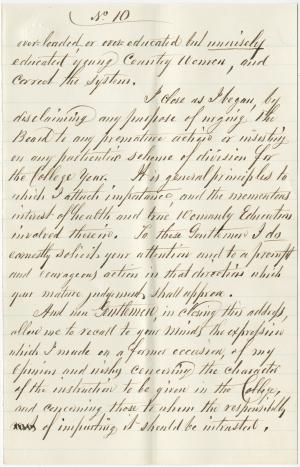 No 10
over-loaded, or over educated but unwisely
educated young Country Women, and
correct the system.
I close as I began, by
disclaiming any purpose of urging the
Board to any premature action or insisting
on any particular scheme of division for
the College Year. It is general principles to
which I attach importance, and the momentous
interest of health and true Womanly Education
involved therein. To these Gentlemen I do
earnestly solicit your attention and to a prompt
and courageous action in that direction which
your mature judgement shall approve.
And now Gentlemen in closing this address,
allow me to recall to your minds the expression
which I made on a former occasion, of my
Opinion and wishes concerning the character
of the instruction to be given in the College,
and concerning those to whom the responsibility
of imparting it should be intrusted.